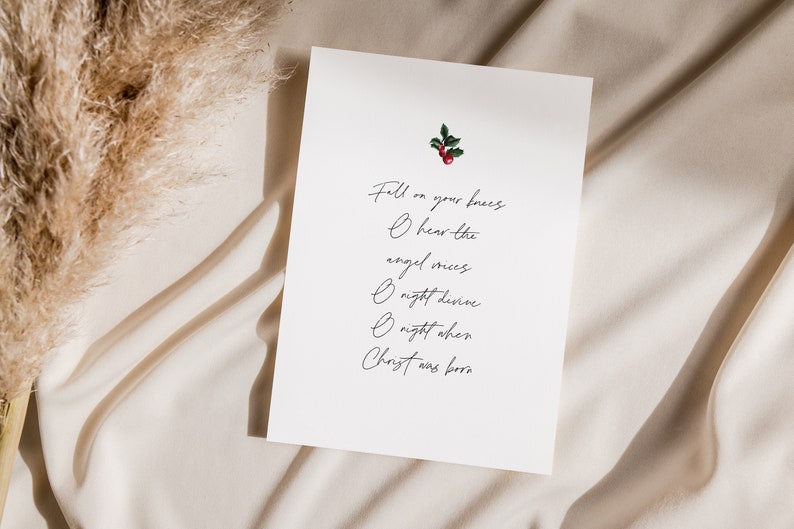 Fall on your knees
O hear the
angel voices
O night divine
O night when
Christ was born